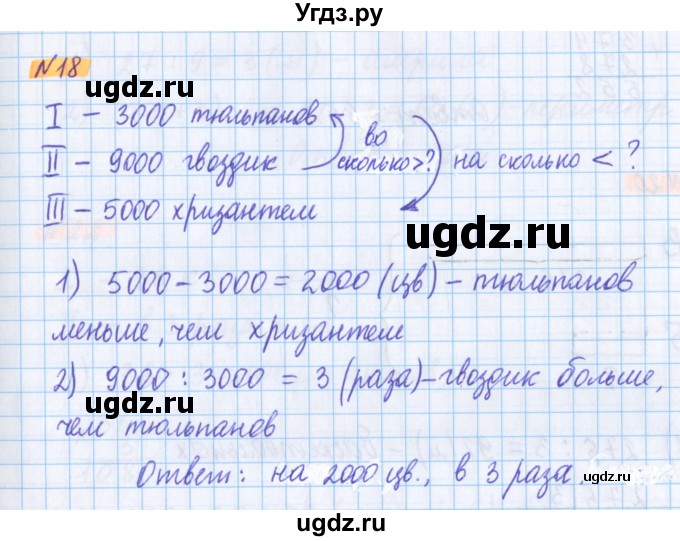 Угдз.ру
№18
ugdz.ru
I – 3000 тюльпанов
II – 9000 гвоздик
во сколько >?
на сколько < ?
III – 5000 хризантем
ugdz.ru
1) 5000 – 3000 = 2000 (цв) – тюльпанов
ugdz.ru
меньше, чем хризантем
2) 9000 : 3000 = 3 (раза) – гвоздик больше,
ugdz.ru
чем тюльпанов
Ответ: на 2000 цв., в 3 раза.
ugdz.ru
ugdz.ru